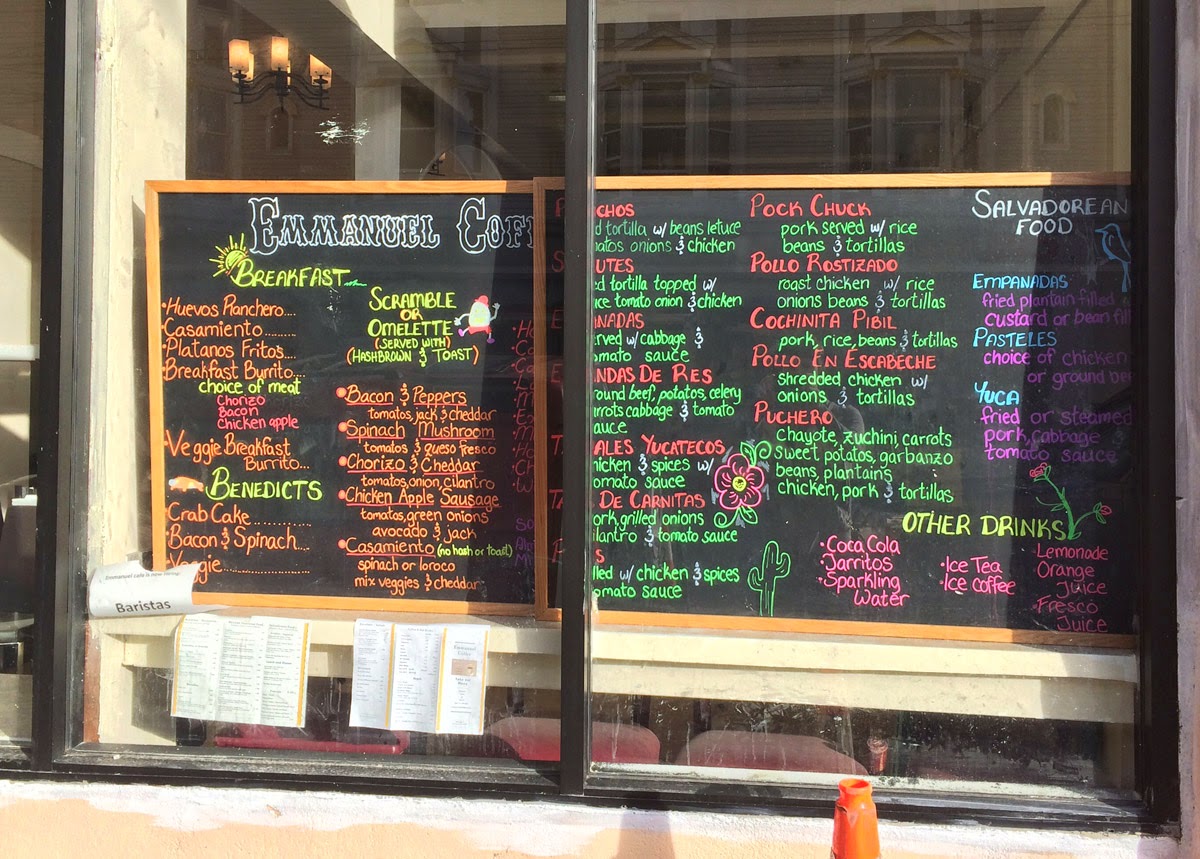 EMMANUEL COF
BREAKFAST...
Huevos Planchero....
Casamiento.........
Platanos Fritos....
Breakfast Burrito....
choice of meat
Chorizo
Bacon
Chicken apple
Veggie Breakfast
Burrito...
BENEDICTS
Crab Cake...........
Bacon & Spinach....
Veggie..............
SCRAMBLE
OR
OMELETTE
(SERVED WITH)
(HASHBROWN & TOAST)
Bacon & Peppers
tomatos, jack & cheddar
Spinach Mushroom
tomatos & queso fresco
Chorizo & Cheddar
tomatos, onion, cilantro
Chicken Apple Sausage
tomatos, green onions
avocado & jack
Casamiento (no hash or toast)
spinach or loroco
mix veggies & cheddar
CHOS
d tortilla w/ beans letuce
atos onions & chicken
UTES
ed tortilla topped w/
uce tomato onion & chicken
NADAS
erved w/ cabbage &
omato sauce
NDAS DE RES
ound beef, potatos, celery
rrots cabbage & tomato
auce
ALES YUCATECOS
hicken & spices w/
omato sauce
DE CARNITAS
ork, grilled onions
ilantro & tomato sauce
S
lled w/ chicken & spices
omato sauce
POCK CHUCK
pork served w/ rice
beans & tortillas
POLLO ROSTIZADO
roast chicken w/ rice
onions beans & tortillas
COCHINITA PIBIL
pork, rice, beans & tortillas
POLLO EN ESCABECHE
shredded chicken w/
onions & tortillas
PUCHERO
chayote, zuchini, carrots
sweet potatos, garbanzo
beans, plantains
chicken, pork & tortillas
SALVADOREAN
FOOD
EMPANADAS
fried plantain filled
custard or bean fil
PASTELES
choice of chicken
or ground be
YUCA
fried or steamed
pork, cabbage
tomato sauce
OTHER DRINKS
Coca Cola
Jarritos
Sparkling
Water
Ice Tea
Ice coffee
Lemonade
Orange
Juice
Fresco
Juice
Baristas